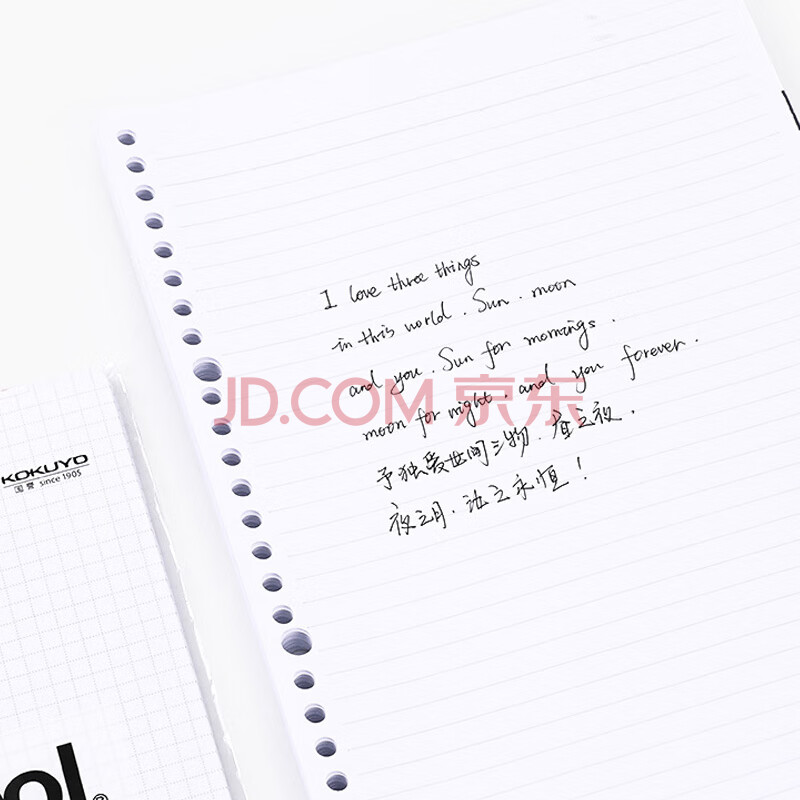 I love three things
in this world. Sun. moon
and you. Sun for mornings.
moon for night. and you forever.
予独爱世间三物.昼之夜.
夜之月.汝之永恒!
JD.COM 京东
KOKUYO
国誉 since 1905
ol